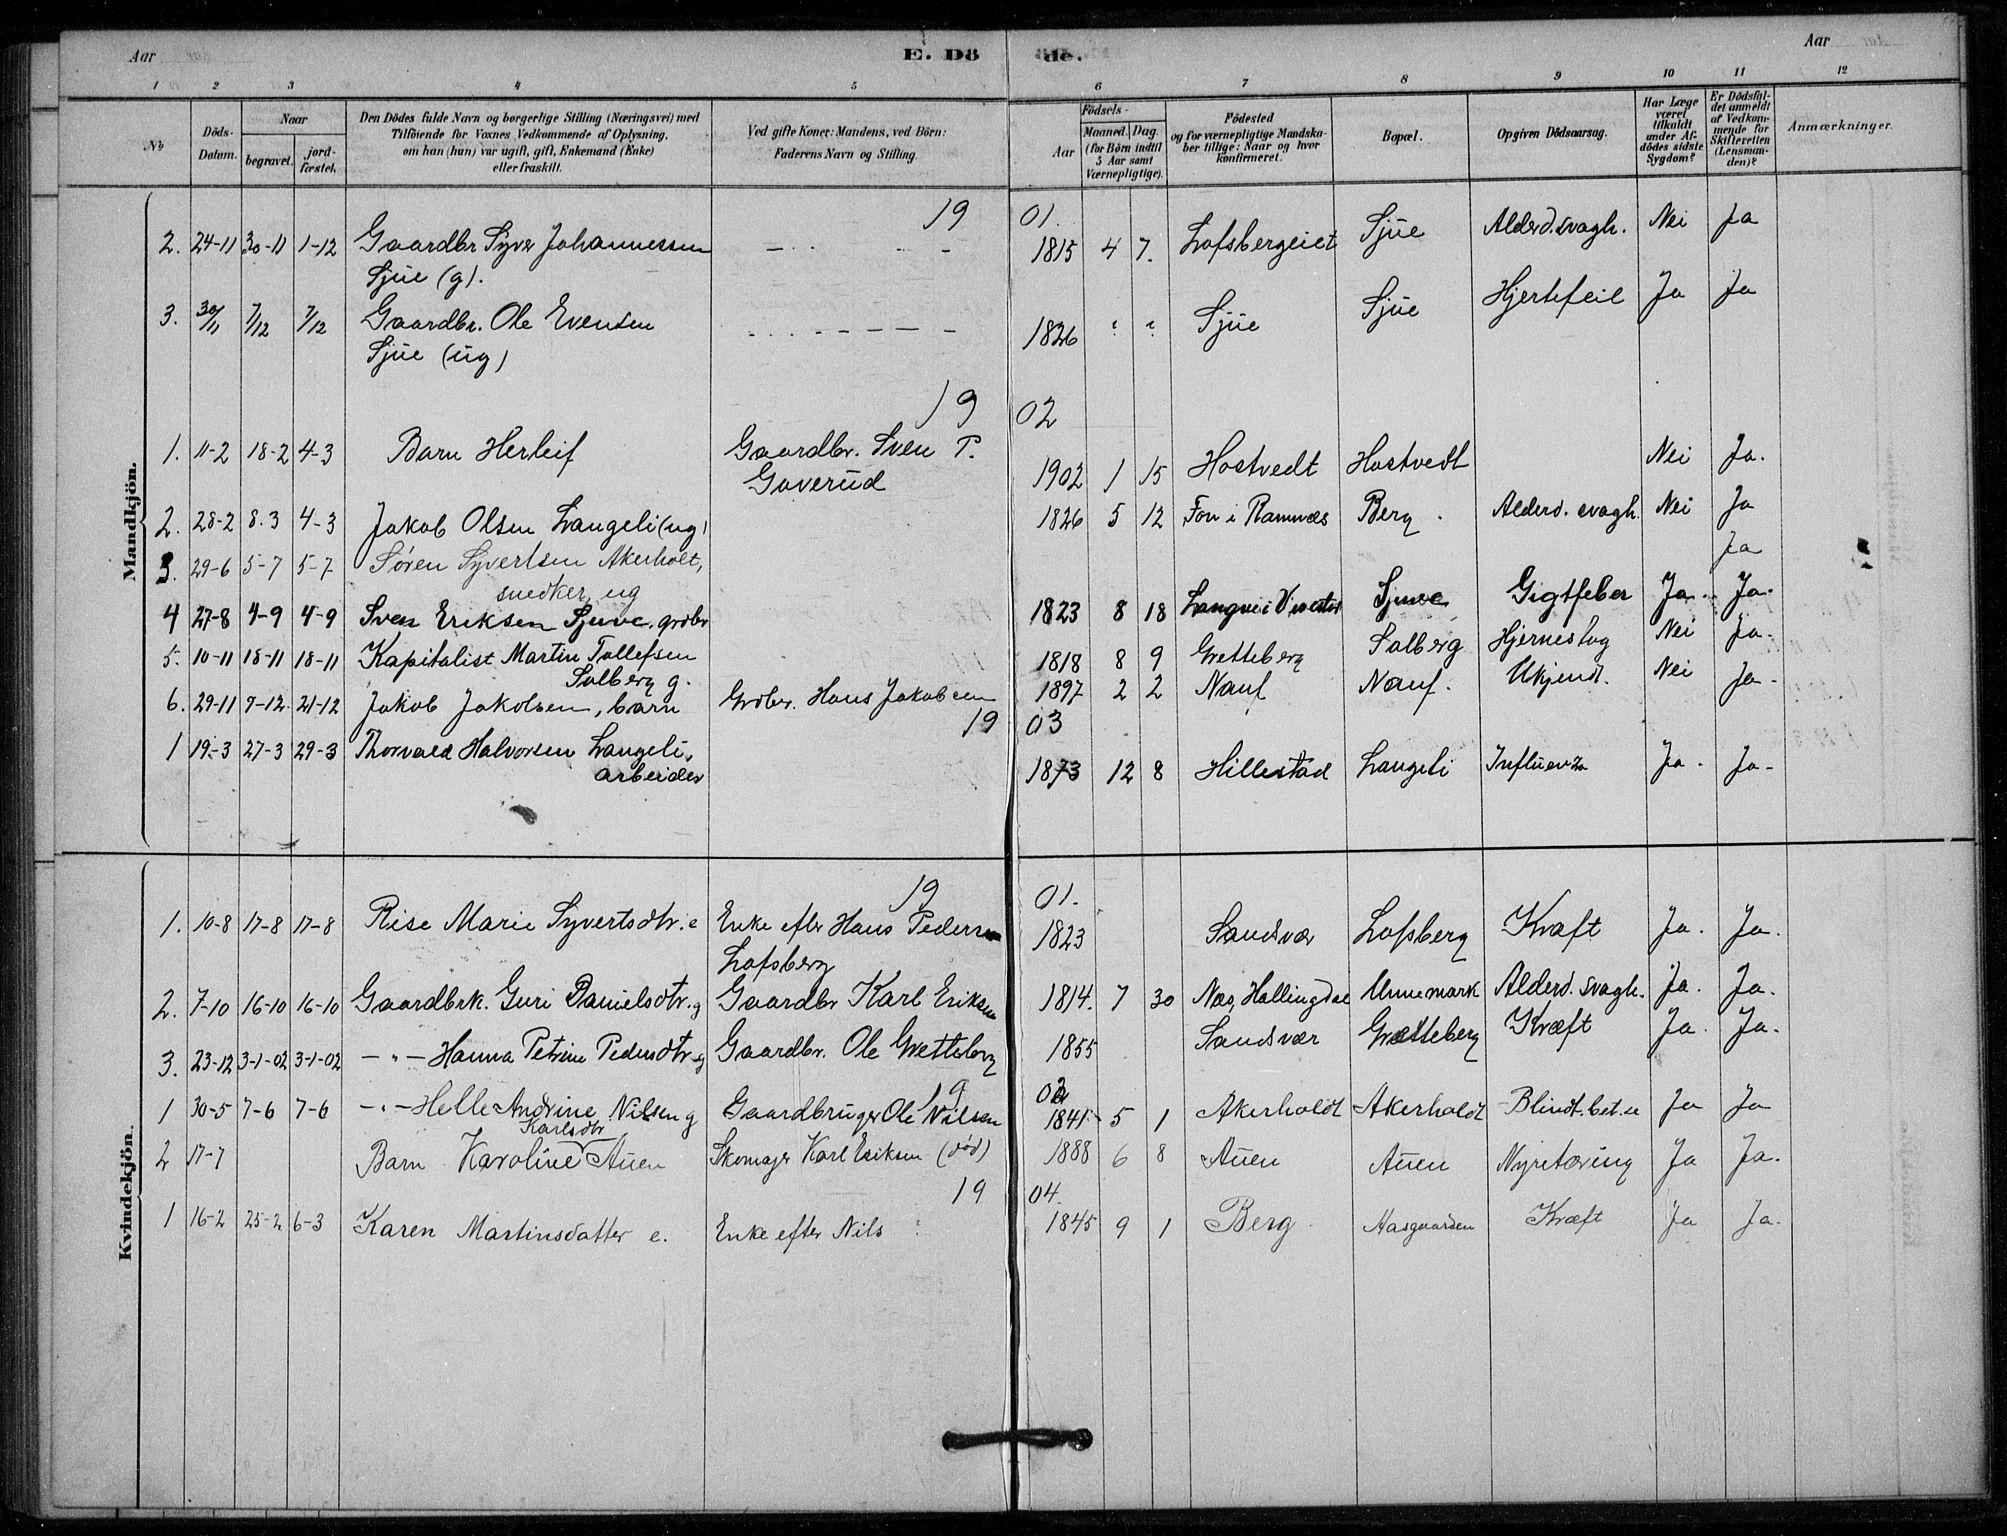 Aar
E. Dö de.
Aar
1 2 3 4 5 6 7 8 9 10 11 12
No
Döds-Datum.
Naar
begravet. jord-fæstet.
Den Dödes fulde Navn og borgerlige Stilling (Næringsvei) med
Tilföiende for Voxnes Vedkommende af Oplysning,
om han (hun) var ugift, gift, Enkemand (Enke)
eller fraskilt.
Ved gifte Koner: Mandens, ved Börn:
Faderens Navn og Stilling.
Födsels-
Aar
Maaned. Dag.
(for Börn indtil
5 Aar samt
Værnepligtige).
Födested
og for værnepligtige Mandska-
ber tillige: Naar og hvor
konfirmeret.
Bopæl.
Opgiven Dödsaarsag.
Har Læge
været
tilkaldt
under Af-
dödes sidste
Sygdom?
Er Dödsfal-
det anmeldt
af Vedkom-
mende for
Skifteretten
(Lensman-
den)?
Anmærkninger.
Mandkjön.
19 01.
2. 24-11 30-11 1-12 Gaardbr Syver Johannessen 1815 4 7. Lofsbergeiet Sjue Alderd.svagh. Nei Ja
Sjue (g).
3. 30/11 7/12 7/12 Gaardbr. Ole Evensen 1826 " " Sjue Sjue Hjertefeil Ja Ja
Sjue (ug)
19 02
1. 11-2 18-2 4-3 Barn Herleif Gaardbr. Sven P. 1902 1 15 Hostvedt Hostvedt Nei Ja.
Goverud
2. 28-2 8.3 4-3 Jakob Olsen Langeli (ug) 1826 5 12 Fon i Ramnæs Berg. Alderd. svagh. Nei Ja
3. 29-6 5-7 5-7 Søren Syvertsen Akerholt, Ja
snedker, ug
4 27-8 4-9 4-9 Sven Eriksen Sjuve. grdbr 1823 8 18 Sjuve Gigtfeber Ja. Ja.
5. 10-11 18-11 18-11 Kapitalist Martin Tollefsen 1818 8 9 Gretteberg Solberg Hjerneslag Nei Ja.
Solberg g.
6. 29-11 9-12 21-12 Jakob Jakobsen, barn Grdbr. Hans Jakobsen 1897 2 2 Nauf Nauf. Ukjend. Nei Ja.
19 03
1 19-3 27-3 29-3 Thorvald Halvorsen Langeli, 1873 12 8 Hillestad Langeli Influenza Ja. Ja.
arbeider
Kvindekjön.
19 01.
1. 10-8 17-8 17-8 Rise Marie Syvertsdtr. e Enke efter Hans Pedersen 1823 Sandsvær Lofsberg Kræft Ja. Ja.
Lofsberg
2. 7-10 16-10 16-10 Gaardbrk. Guri Danielsdtr. g Gaardbr Karl Eriksen 1814. 7 30 Næs, Hallingdal Unnemark Alderd. svagh. Ja. Ja.
3. 23-12 3-1-02 3-1-02 -"- Hanna Petrine Pedersdtr. g Gaardbr. Ole Gretteberg 1855 Sandsvær Grætteberg Kræft Ja. Ja.
19 02
1 30-5 7-6 7-6 -"- Helle Andrine Nilsen g Gaardbruger Ole Nilsen 1841 5 1 Akerholdt Akerholdt Blindt.bet.se Ja Ja
Karlsdtr
2 17-7 Barn Karoline Auen Skomager Karl Eriksen (død) 1888 6 8 Auen Auen Nyretæring Ja Ja.
19 04.
1 16-2 25-2 6-3 Karen Martinsdatter e. Enke efter Nils 1845 9 1 Berg Aasgaarden Kræft Ja Ja.